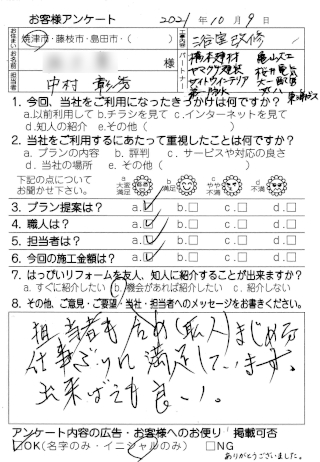 お客様アンケート 2021年10月9日
お住まい 焼津市・藤枝市・島田市・( ) 工事内容 浴室改修
お名前 様 パートナー
ヤマグチ建装 桜井電気
サイトウインテリア
担当者 中村
1. 今回、当社をご利用になったきっかけは何ですか?
a.以前利用して b.チラシを見て c.インターネットを見て
d.知人の紹介 e.その他( )
2. 当社をご利用するにあたって重視したことは何ですか?
a. プランの内容 b. 評判 c. サービスや対応の良さ
d. 当社の場所 e. その他( )
下記の点について
お聞かせ下さい。
a 大変満足 b 満足 c やや不満 d 不満
3. プラン提案は? a.☑ b.□ c.□ d.□
4. 職人は? a.☑ b.□ c.□ d.□
5. 担当者は? a.☑ b.□ c.□ d.□
6. 今回の施工金額は? a.☑ b.□ c.□ d.□
7. はっぴいリフォームを友人、知人に紹介することが出来ますか?
a. すぐに紹介したい b.機会があれば紹介したい c. 紹介しない
8. その他、ご意見・ご要望・当社・担当者へのメッセージをお書きください。
担当者も含め(職人)まじめな
仕事ぶりに満足しています。
出来ばえも良い。
アンケート内容の広告・お客様へのお便り 掲載可否
☑OK(名字のみ・イニシャルのみ) □NG
ありがとうございました。